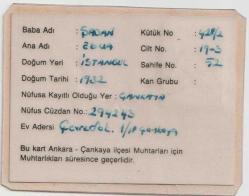 Baba Adı : ŞABAN Kütük No : 428/2
Ana Adı : Cilt No : 19-3
Doğum Yeri : İSTANBUL Sahife No : 52
Doğum Tarihi : 1932 Kan Grubu :
Nüfusa Kayıtlı Olduğu Yer : ÇANKAYA
Nüfus Cüzdan No. : 294243
Ev Adersi
Bu kart Ankara - Çankaya ilçesi Muhtarları için
Muhtarlıkları süresince geçerlidir.